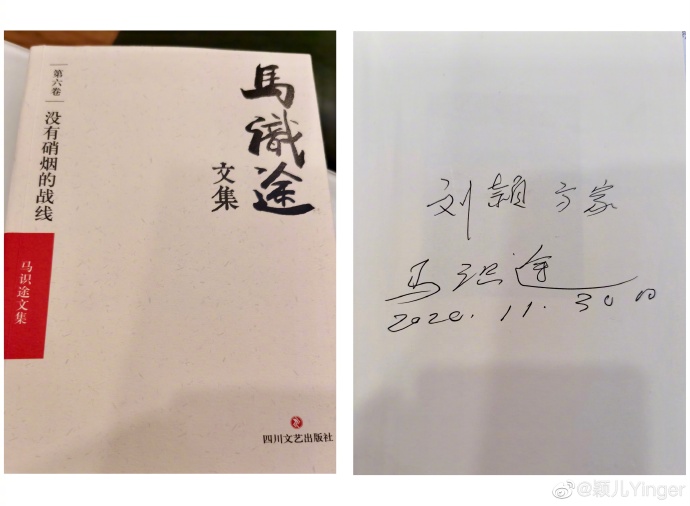 馬識途
文集
第六卷 没有硝烟的战线
马识途文集
四川文艺出版社
刘颖方家
马识途
2020.11.30日
@颖儿Yinger